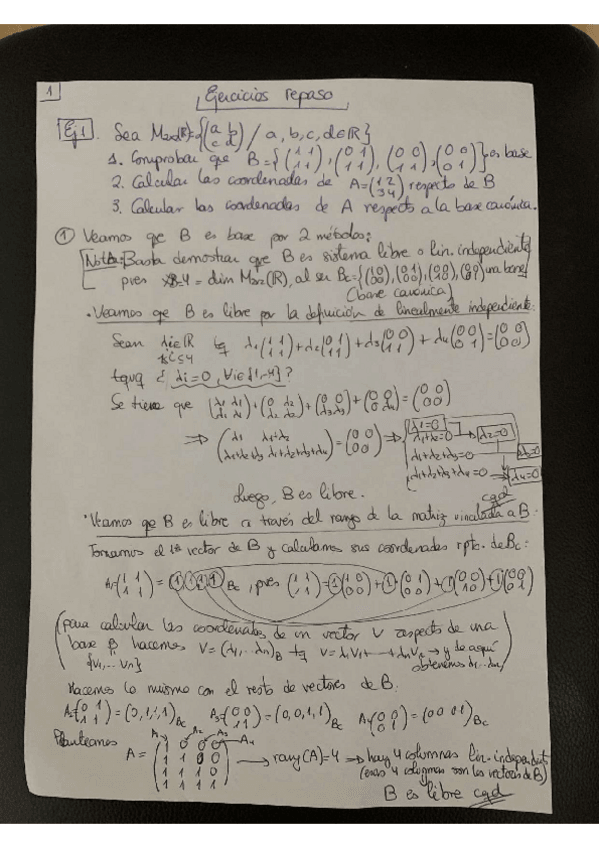 1
Ejercicios repaso
Ej1. Sea M2x2(R)={(a b; c d) / a, b, c, d∈R}
1. Comprobar que B={(1 1; 1 1), (0 1; 1 1), (0 0; 1 1), (0 0; 0 1)} es base
2. Calcular las coordenadas de A=(1 2; 3 4) respecto de B
3. Calcular las coordenadas de A respecto a la base canónica.
① Veamos que B es base por 2 métodos:
Nota: Basta demostrar que B es sistema libre o lin. independiente
pues 4 = dim M2x2(R), al ser Bc={(1 0; 0 0), (0 1; 0 0), (0 0; 1 0), (0 0; 0 1)} una base
(base canónica)
· Veamos que B es libre por la definición de linealmente independiente:
Sean λi∈R tq λ1(1 1; 1 1)+λ2(0 1; 1 1)+λ3(0 0; 1 1)+λ4(0 0; 0 1)=(0 0; 0 0)
1≤i≤4
¿λi=0, ∀i∈{1,-4}?
Se tiene que (λ1 λ1; λ1 λ1)+(0 λ2; λ2 λ2)+(0 0; λ3 λ3)+(0 0; 0 λ4)=(0 0; 0 0)
⇒ (λ1 λ1+λ2; λ1+λ2+λ3 λ1+λ2+λ3+λ4)=(0 0; 0 0) ⇒ λ1=0
λ1+λ2=0 → λ2=0
λ1+λ2+λ3=0 → λ3=0
λ1+λ2+λ3+λ4=0 → λ4=0
Luego, B es libre. cqd
· Veamos que B es libre a través del rango de la matriz vinculada a B:
Tomamos el 1er vector de B y calculamos sus coordenadas rpto. de Bc:
A1=(1 1; 1 1)=(1,1,1,1)Bc, pues (1 1; 1 1)=1(1 0; 0 0)+1(0 1; 0 0)+1(0 0; 1 0)+1(0 0; 0 1)
(para calcular las coordenadas de un vector V respecto de una
base B, hacemos V=(λ1,..λn)B tq V=λ1V1+---+λnVn → y de aquí
{V1,...Vn} obtenemos λ1...λn)
Hacemos lo mismo con el resto de vectores de B:
A2=(0 1; 1 1)=(0,1,1,1)Bc A3=(0 0; 1 1)=(0,0,1,1)Bc A4=(0 0; 0 1)=(0 0 0 1)Bc
Planteamos A1 A2 A3 A4
A=(1 0 0 0; 1 1 0 0; 1 1 1 0; 1 1 1 1) → rang(A)=4 ⇒ hay 4 columnas lin. independents
(esas 4 columnas son los vectores de B)
B es libre cqd